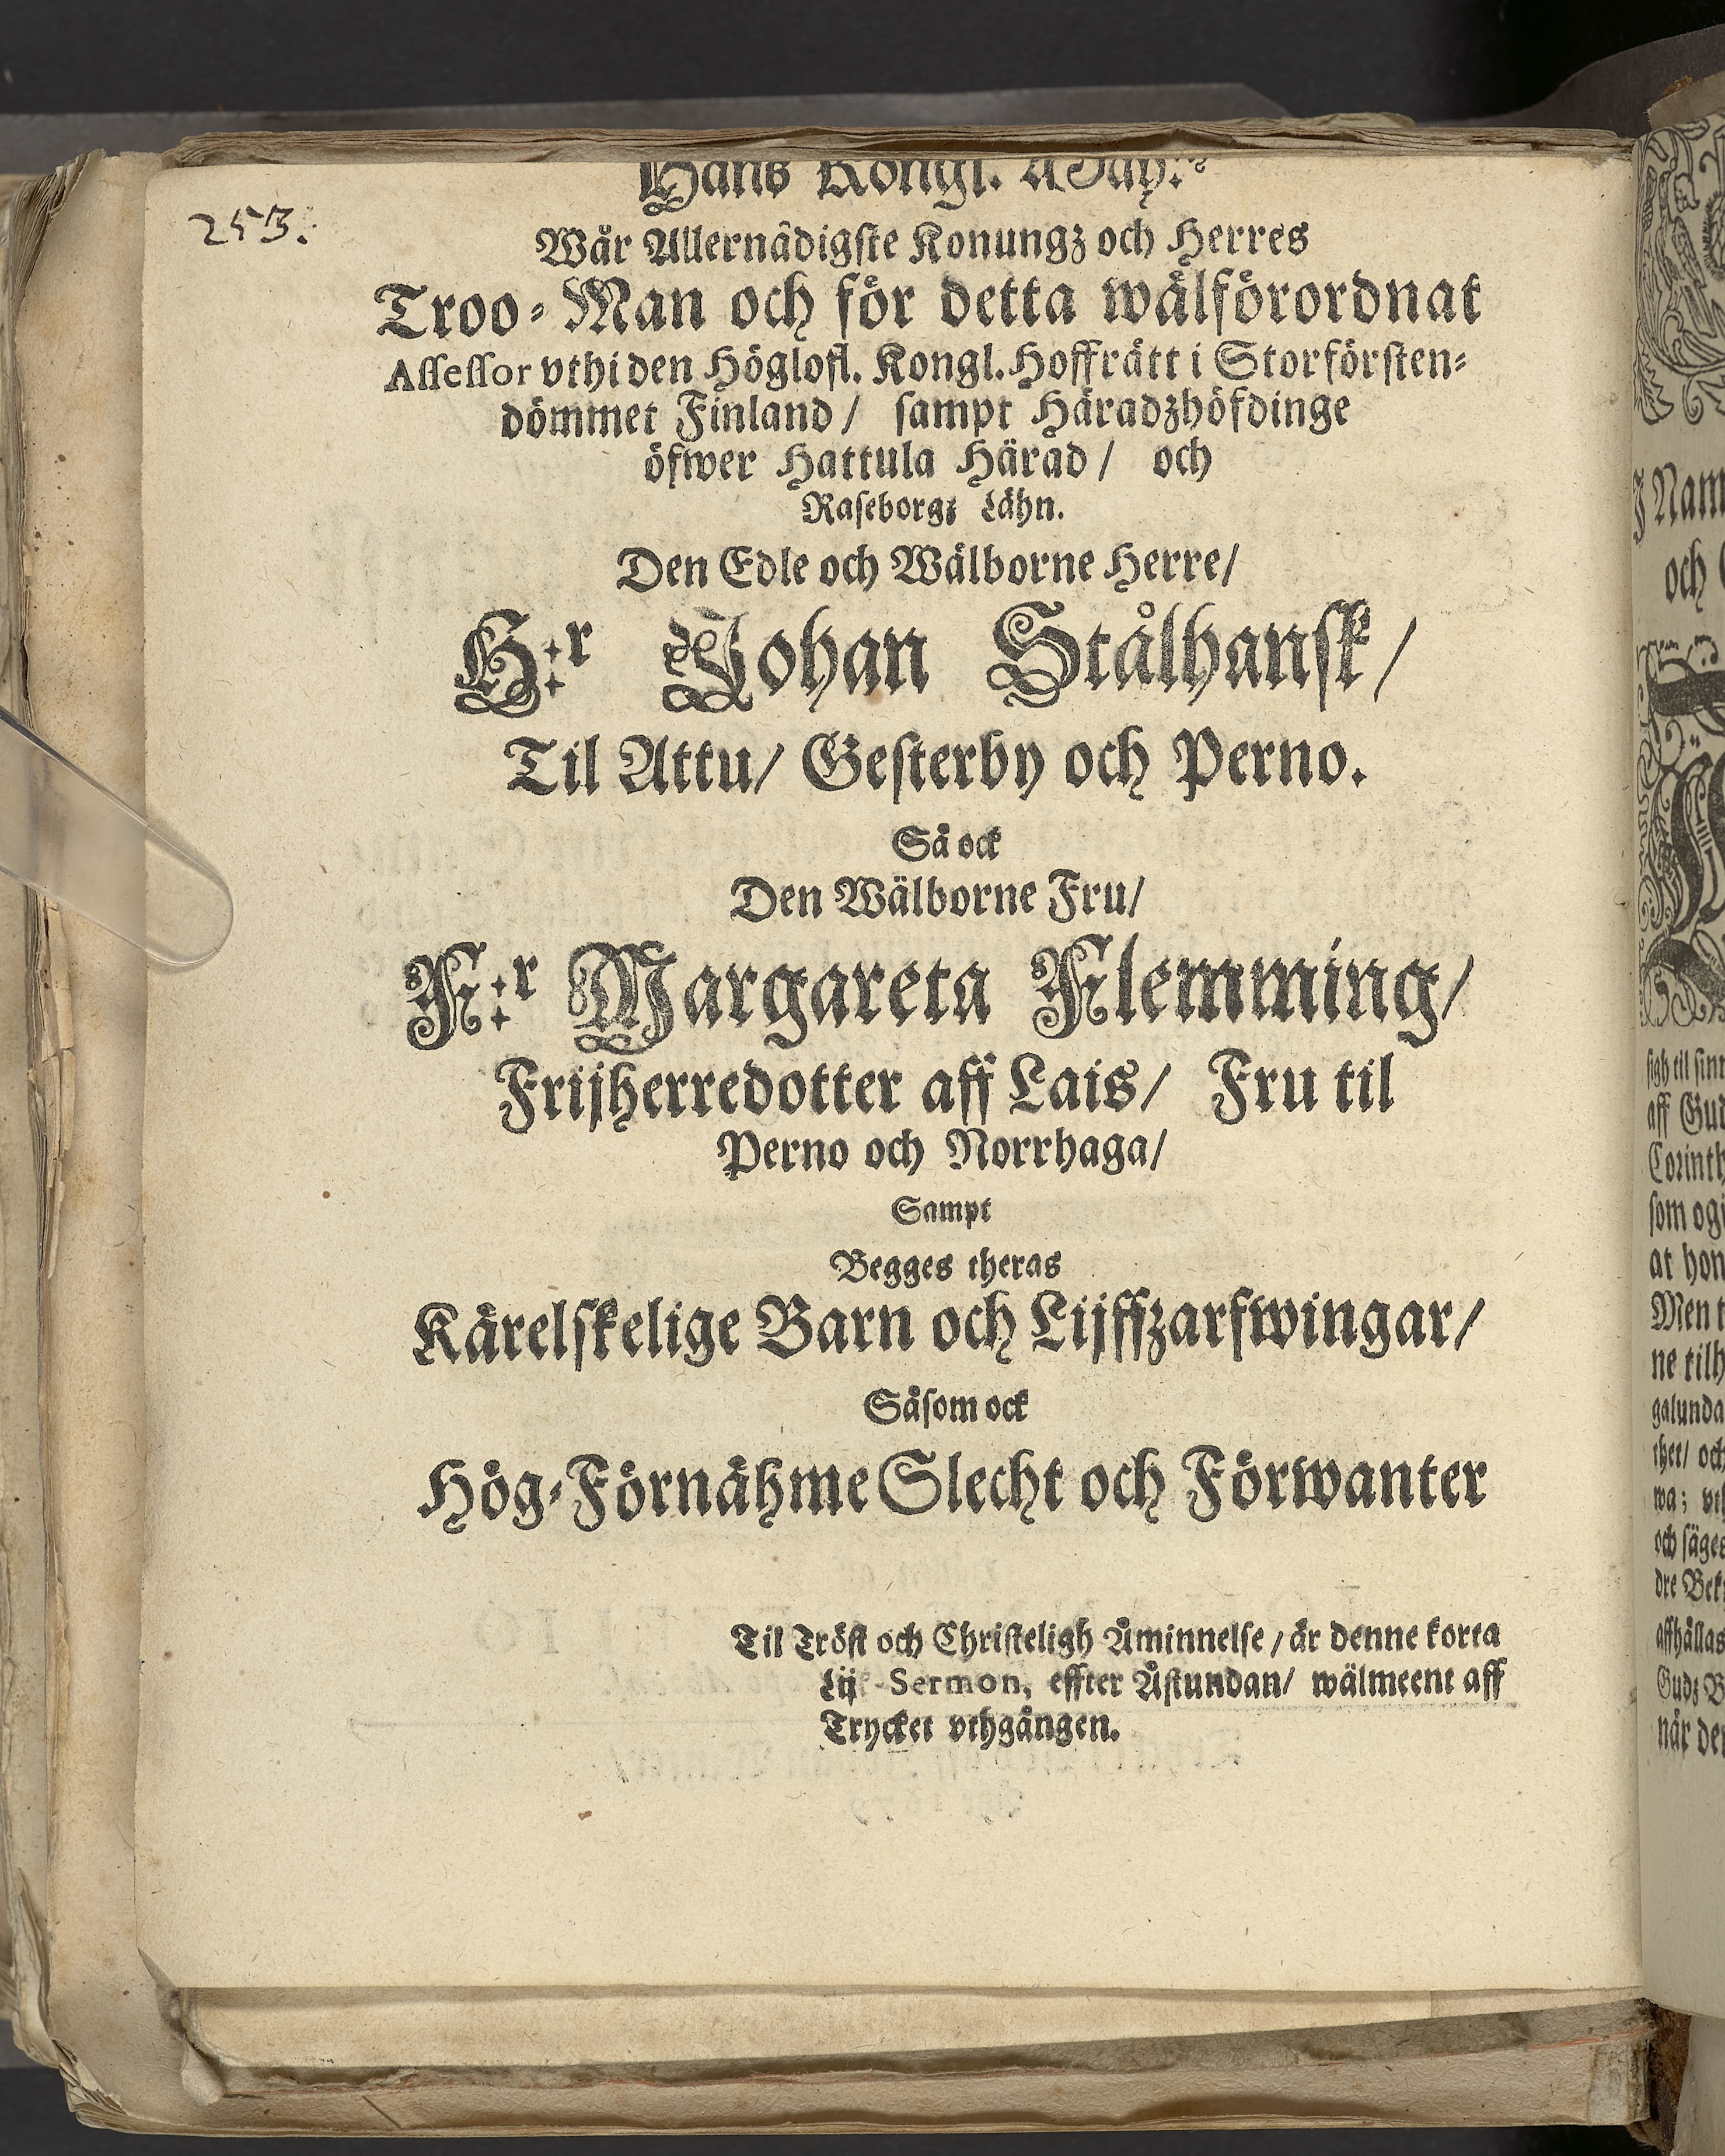 253.
Hans Kongl. May:tz
Wår Allernådigste Konungz och Herres
Troo-Man och för detta wålförordnat
Assessor vthi den Höglofl. Kongl. Hoffrått i Storförsten-
dömmet Finland/ sampt Håradzhöfdinge
öfwer Hattula Härad/ och
Raseborgz Lähn.
Den Edle och Wålborne Herre/
H:r Johan Stålhansk/
Til Attu/ Gesterby och Perno.
Så ock
Den Wälborne Fru/
F:r Margareta Flemming/
Frijherredotter aff Lais/ Fru til
Perno och Norrhaga/
Sampt
Begges theras
Kårelskelige Barn och Lijffzarfwingar/
Såsom ock
Hög-Förnåhme Slecht och Förwanter
Til Tröst och Christeligh Åminnelse/ är denne korta
Lijk-Sermon, effter Åstundan/ wälmeent aff
Trycket vthgången.
J Nam
och
sigh til sin
aff Gud
Corinth
som og
at hon
Men t
ne tilh
galunda
thet/ och
wa; vth
och säges
dre Bek
affhållas
Gudz B
når de